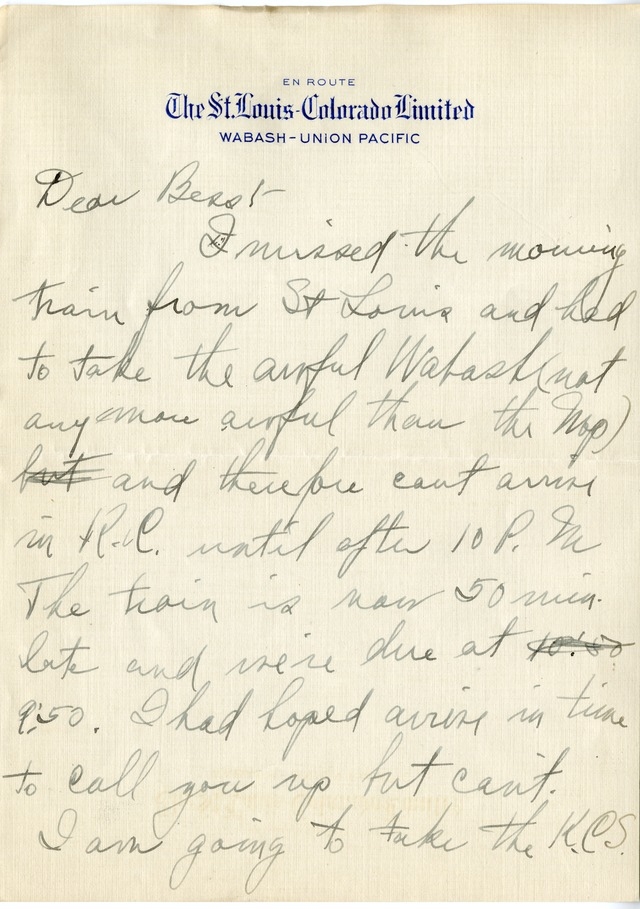 EN ROUTE
The St. Louis-Colorado Limited
WABASH-UNION PACIFIC
Dear Bess:-
I missed the morning
train from St Louis and had
to take the awful Wabash (not
any more awful than the Mop)
but and therefore cant arrive
in K.C. until after 10 P. M
The train is now 50 min.
late and we're due at 10:50
9:50. I had hoped arrive in time
to call you up but can't.
I am going to take the K.C.S.